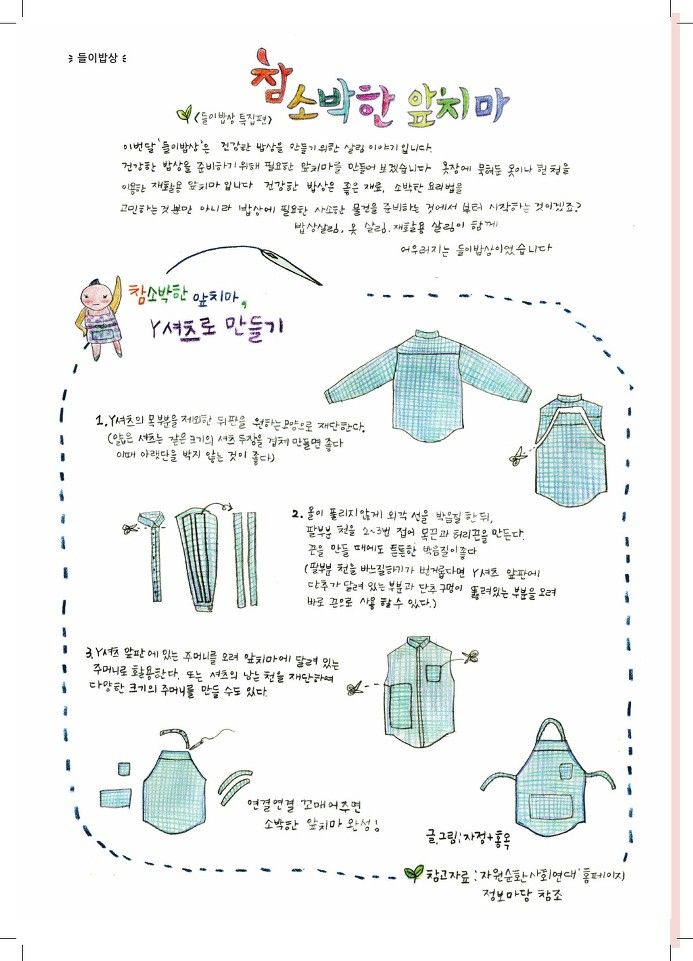 들이밥상
참소박한 앞치마
<들이밥상 특집편>
이번달 '들이밥상'은 건강한 밥상을 만들기 위한 살림 이야기입니다.
건강한 밥상을 준비하기 위해 필요한 앞치마를 만들어 보겠습니다. 옷장에 묵혀둔 옷이나 헌 천을
이용한 재활용 앞치마 입니다 건강한 밥상은 좋은 재료, 소박한 요리법을
고민하는것 뿐만 아니라 밥상에 필요한 사소한 물건을 준비하는 것에서 부터 시작하는 것이겠죠?
밥상살림, 옷 살림, 재활용 살림이 함께
어우러지는 들이밥상이었습니다
참소박한 앞치마,
Y셔츠로 만들기
1. Y셔츠의 목부분을 제외한 뒤판을 원하는모양으로 재단한다.
(얇은 셔츠는 같은 크기의 셔츠 두장을 겹쳐 만들면 좋다
이때 아랫단을 박지 않는 것이 좋다)
2. 올이 풀리지않게 외곽 선을 박음질 한 뒤,
팔부분 천을 2~3번 접어 목끈과 허리끈을 만든다.
끈을 만들 때에도 튼튼한 박음질이 좋다
(팔부분 천을 바느질하기가 번거롭다면 Y셔츠 앞판에
단추가 달려 있는 부분과 단추구멍이 뚫려있는 부분을 오려
바로 끈으로 사용 할 수 있다.)
3. Y셔츠 앞판에 있는 주머니를 오려 앞치마에 달려 있는
주머니로 활용한다. 또는 셔츠의 남는 천을 재단하여
다양한 크기의 주머니를 만들 수도 있다.
연결연결 꼬매어주면
소박한 앞치마 완성!
글,그림:자정+홍옥
참고자료: '자원순환사회연대' 홈페이지
정보마당 참조